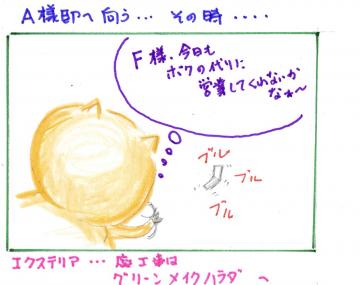 A様邸へ向う… その時‥‥
F様、今日も
ボクの代りに
営業してくれないか
なぁ〜
ブル
ブル
ブル
エクステリア … 庭工事は
グリーンメイクハラダ へ